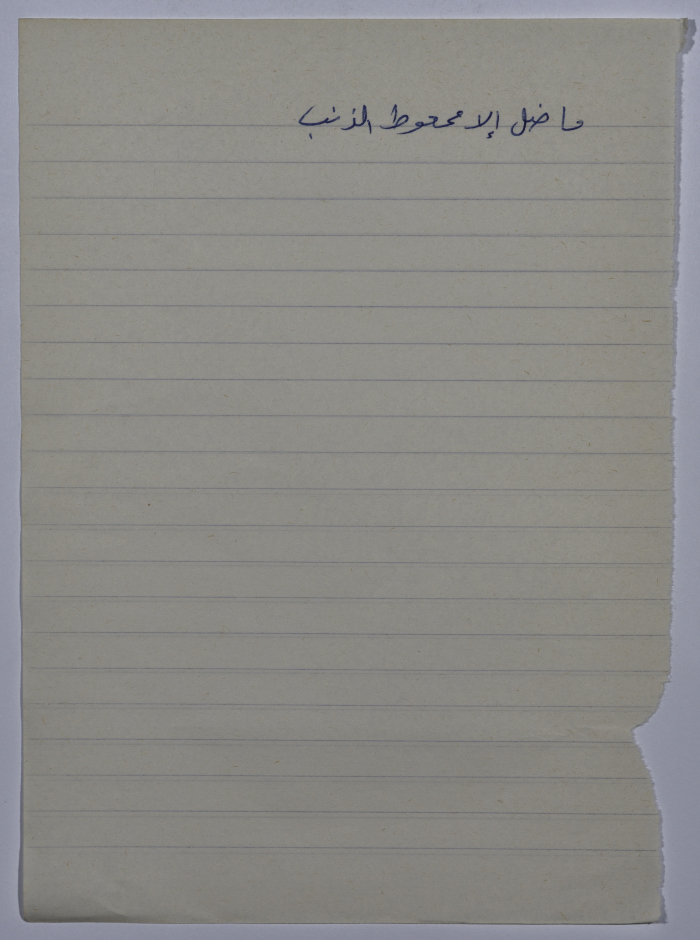 ما ضل إلا ممعوط الذنب